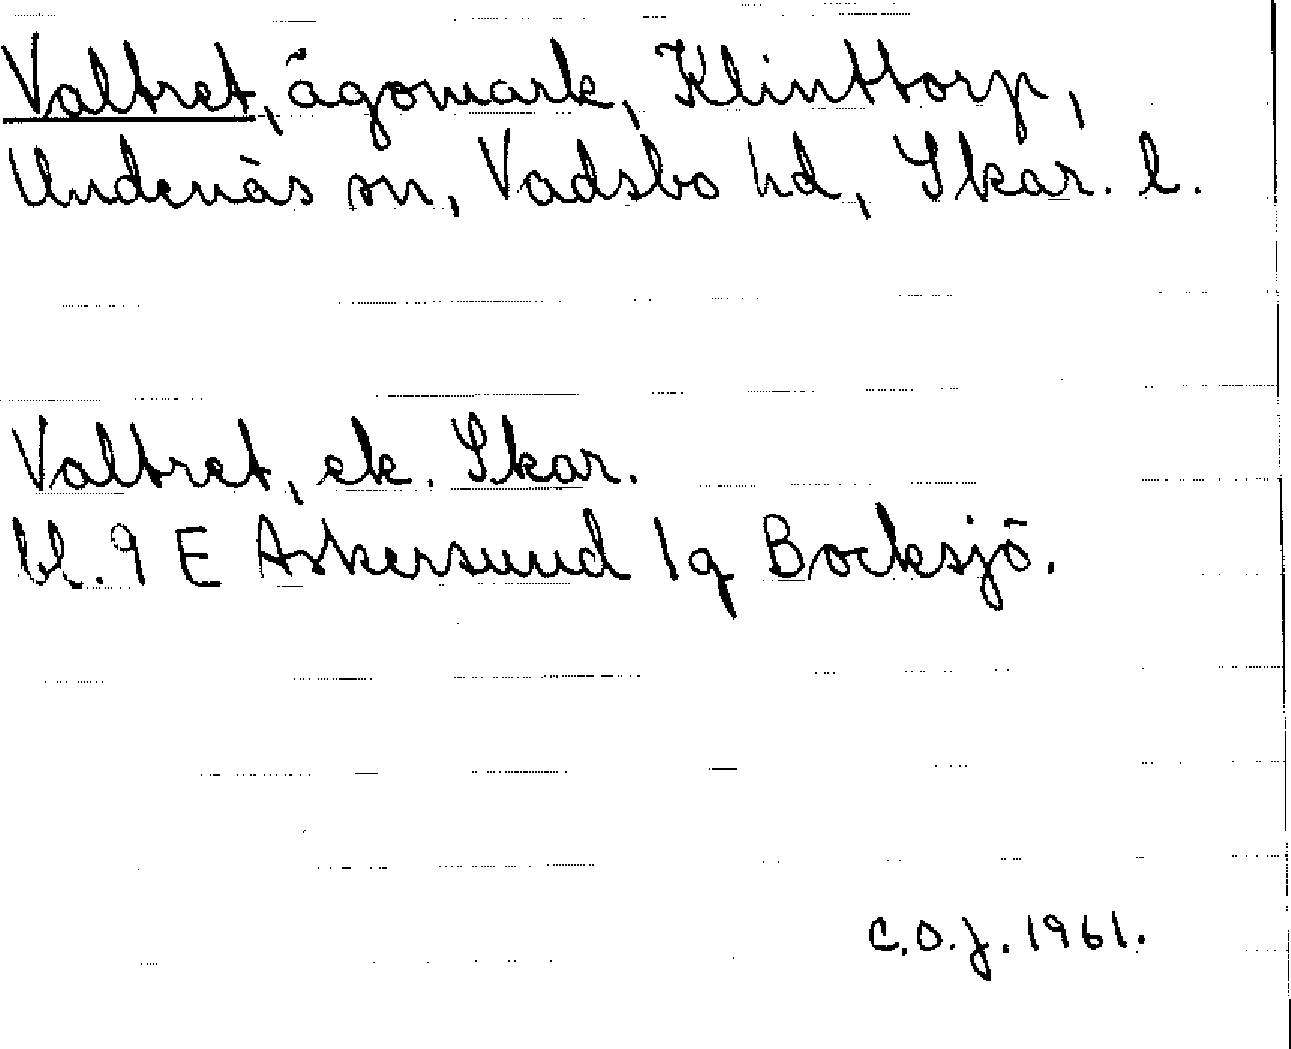 Valtret, ägomark, Klinttorp,
Undenäs sn, Vadsbo hd, Skar. l.
Valtret, ek. Skar.
bl. 9 E Askersund 1g Bocksjö.
C.O.J. 1961.